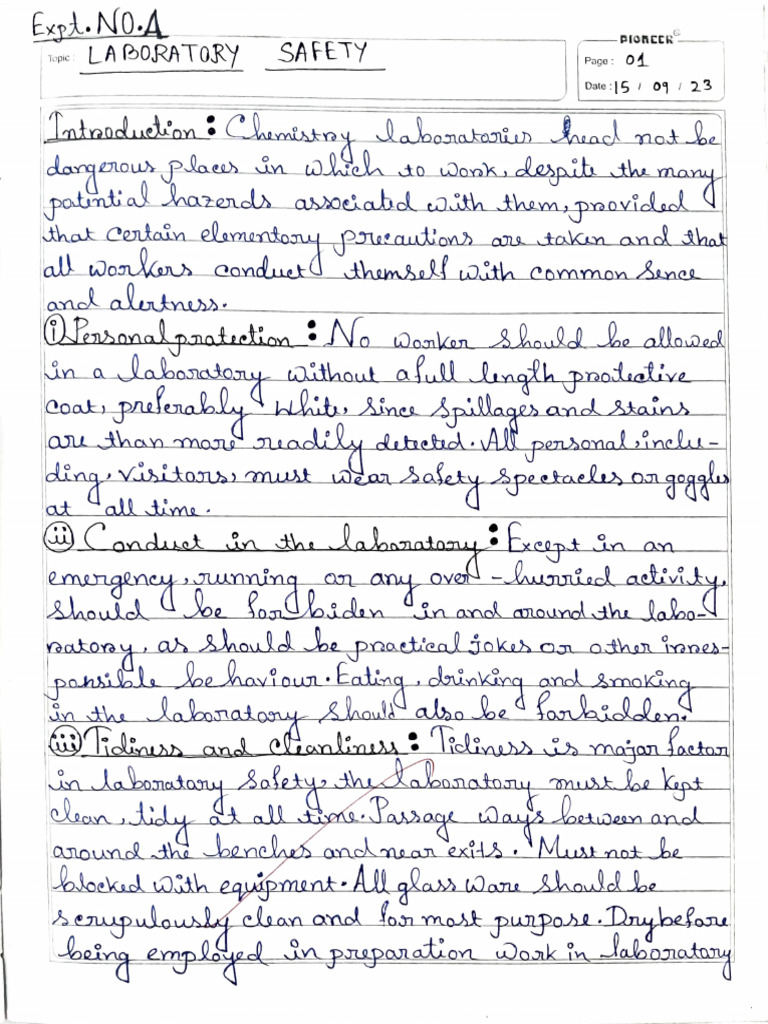 Expt. NO. A
PIONEER
Topic: LABORATORY SAFETY
Page: 01
Date: 15 / 09 / 23
Introduction: Chemistry laboratories head not be
dangerous places in which to work, despite the many
potential hazerds associated with them, provided
that certain elementory precautions are taken and that
all workers conduct themself with common sence
and alertness.
(i) Personal protection: No worker should be allowed
in a laboratory without a full length protective
coat, preferably white, since spillages and stains
are than more readily detected. All personal, inclu-
ding, visitors, must wear safety spectacles or goggles
at all time.
(ii) Conduct in the laboratory: Except in an
emergency, running or any over-hurried activity,
should be forbiden in and around the labo-
ratory, as should be practical jokes or other irres-
ponsible behaviour. Eating, drinking and smoking
in the laboratory should also be forbidden.
(iii) Tidiness and cleanliness: Tidiness is major factor
in laboratory safety, the laboratory must be kept
clean, tidy at all time. Passage ways between and
around the benches and near exits. Must not be
blocked with equipment. All glass ware should be
scrupulously clean and for most purpose. Dry before
being employed in preparation work in laboratory